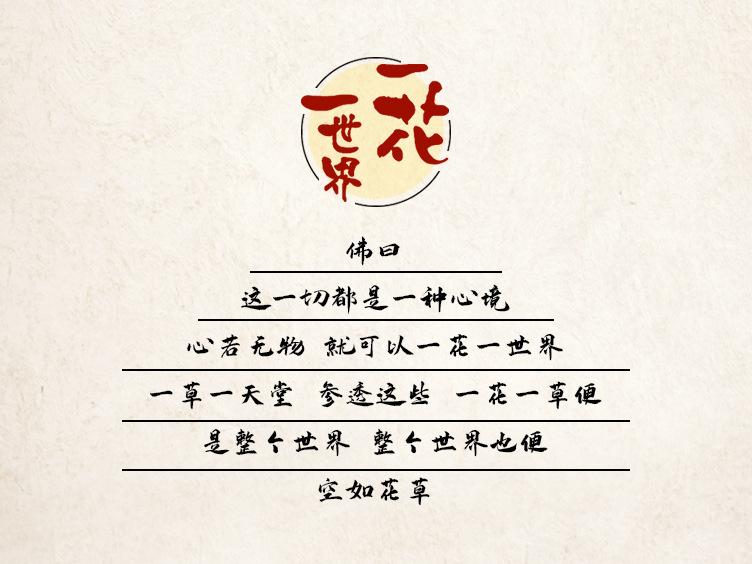 一花
一世界
佛曰
这一切都是一种心境
心若无物 就可以一花一世界
一草一天堂 参透这些 一花一草便
是整个世界 整个世界也便
空如花草